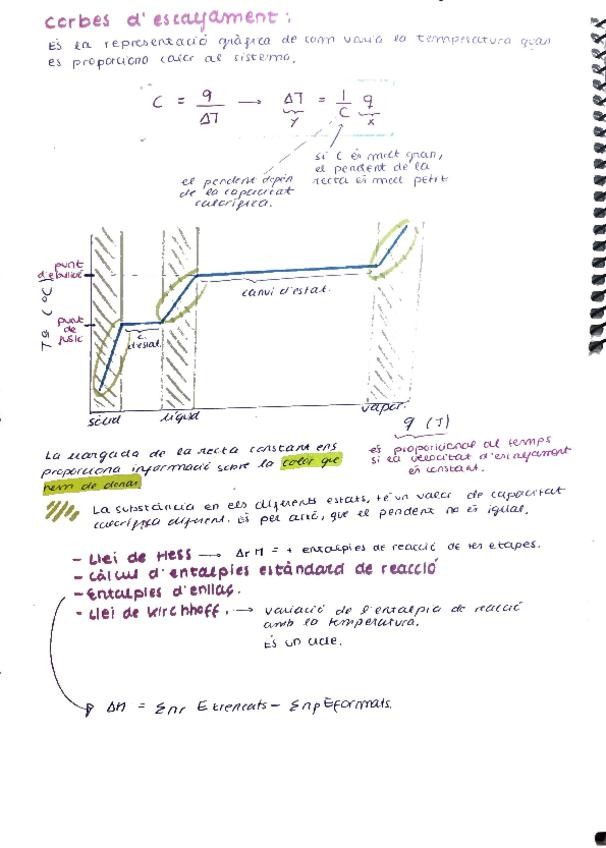 corbes d'escalfament:
És la representació gràfica de com varia la temperatura quan
es proporciona calor al sistema.
C = q / ΔT → ΔT = 1/C q
y
x
si C és molt gran,
el pendent de la
recta és molt petit
el pendent depèn
de la capacitat
calorífica.
Tª (ºC)
punt
d'ebullició
punt
de
fusió
canvi d'estat.
c.
d'estat.
sòlid
líquid
vapor.
q (J)
és proporcional al temps
si la velocitat d'escalfament
és constant.
La llargada de la recta constant ens
proporciona informació sobre la calor que
hem de donar.
La substància en els diferents estats, té un valor de capacitat
calorífica diferent. És per això, que el pendent no és igual.
- Llei de Hess → ΔrH = + entalpies de reacció de les etapes.
- Càlcul d'entalpies estàndard de reacció
- Entalpies d'enllaç.
- Llei de Kirchhoff. → variació de l'entalpia de reacció
amb la temperatura.
És un cicle.
ΔH = Σnr Etrencats - Σnp Eformats.